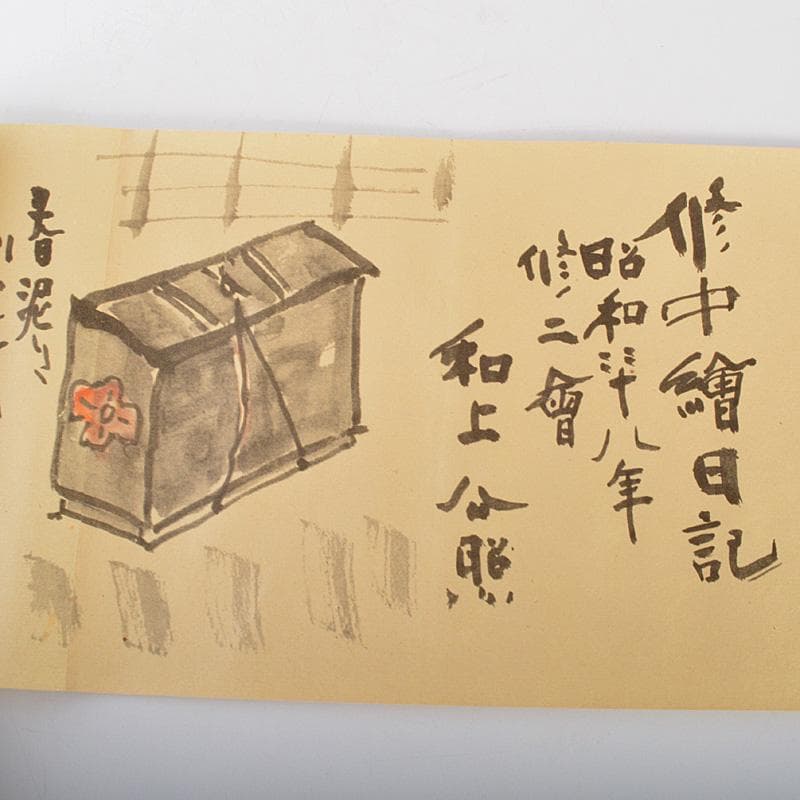 修中繪日記
昭和三十八年
修二會
和上 公照
香泥